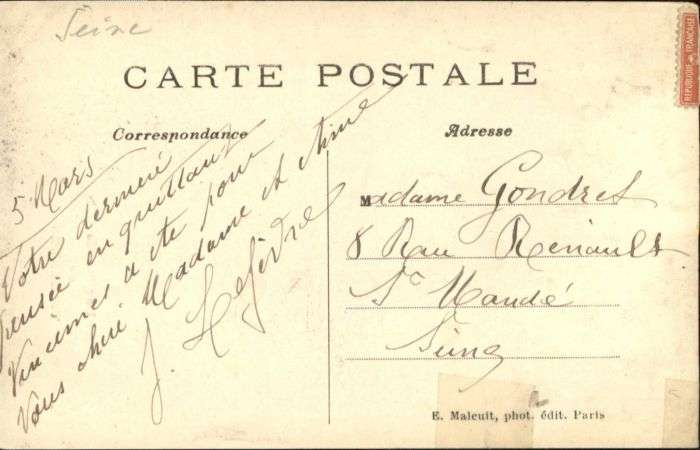 Seine
REPUBLIQUE FRANCAISE
CARTE POSTALE
Correspondance
Adresse
5 Mars
Votre dernière
pensée en quittant
Vincennes a été pour
Vous chère Madame et Aimé
J. Lefèvre
Madame Gondret
8 Rue Renault
St Mandé
Seine
E. Malcuit, phot. édit. Paris